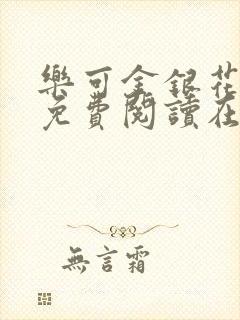 樂可金銀花
免費閱讀在
無言霜